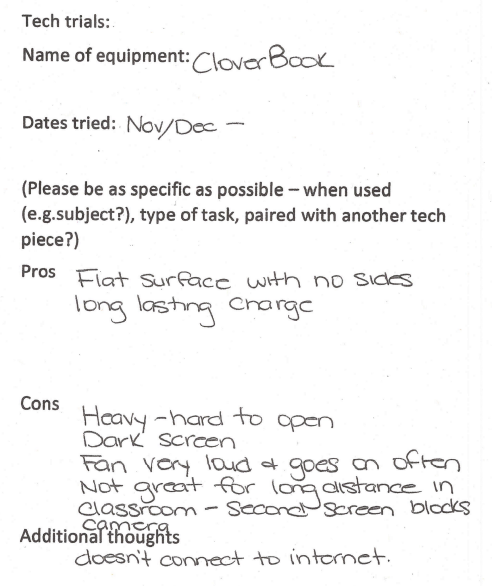 Tech trials:
Name of equipment: CloverBook
Dates tried: Nov/Dec –
(Please be as specific as possible – when used
(e.g.subject?), type of task, paired with another tech
piece?)
Pros Flat surface with no sides
long lasting charge
Cons
Heavy - hard to open
Dark screen
Fan very loud & goes on often
Not great for long distance in
classroom - Second screen blocks
camera
Additional thoughts
doesn't connect to internet.